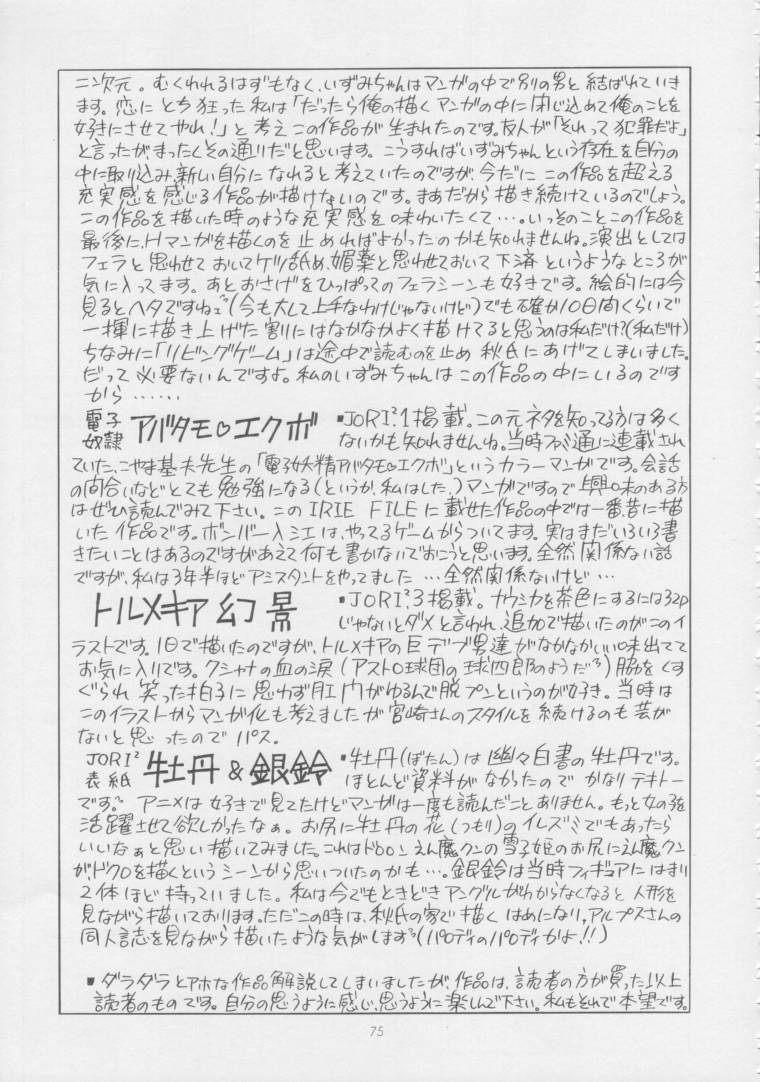 二次元。むくわれるはずもなく、いずみちゃんはマンガの中で別の男と結ばれていき
ます。恋にとち狂った私は「だったら俺の描くマンガの中に閉じ込めて俺のことを
好きにさせてやれ!」と考えこの作品が生まれたのです。友人が「それって犯罪だよ」
と言ったが、まったくその通りだと思います。こうすればいずみちゃんという存在を自分の
中に取り込み、新しい自分になれると考えていたのですが、今だにこの作品を超える
充実感を感じる作品が描けないのです。まあだから描き続けているのでしょう。
この作品を描いた時のような充実感を味わいたくて…。いっそのことこの作品を
最後に、Hマンガを描くのを止めればよかったのかも知れませんね。演出としては
フェラと思わせておいてケツ舐め、媚薬と思わせておいて下済というようなところが
気に入ってます。あとおさげをひっぱってのフェラシーンも好きです。絵的には今
見るとヘタですねェ(今も大して上手なわけじゃないけど)でも確か10日間くらいで
一揮に描き上げた割にはなかなかよく描けてると思うのは私だけ?(私だけ)
ちなみに「リビングゲーム」は途中で読むのを止め秋氏にあげてしまいました。
だって必要ないんですよ。私のいずみちゃんはこの作品の中にいるのです
から……
電子奴隷 アバタモ♡エクボ ▪JORI²1掲載。この元ネタを知ってる方は多く
ないかも知れませんね。当時ファミ通に連載され
ていた、こやま基夫先生の「電子妖精アバタモ♡エクボ」というカラーマンガです。会話
の間合いなどとても勉強になる(というか、私はした、)マンガですので興味のある方
はぜひ読んでみて下さい。このIRIE FILEに載せた作品の中では一番昔に描
いた作品です。ボンバー入江は、やってるゲームからついてます。実はまだいろいろ書
きたいことはあるのですがあえて何も書かないでおこうと思います。全然関係ない話
ですが、私は3年半ほどアシスタントをやってました…全然関係ないけど…
トルメキア幻景 ▪JORI²3掲載。ナウシカを茶色にするには32p
じゃないとダメと言われ、追加で描いたのがこのイ
ラストです。1日で描いたのですが、トルメキアの巨デブ男達がなかなかいい味出てて
お気に入りです。クシャナの血の涙(アストロ球団の球四郎のようだ)脇をくす
ぐられ笑った拍子に思わず肛門がゆるんで脱プンというのが好き。当時は
このイラストからマンガ化も考えましたが宮崎さんのスタイルを続けるのも芸が
ないと思ったのでパス。
JORI²表紙 牡丹&銀鈴 ▪牡丹(ぼたん)は幽々白書の牡丹です。
ほとんど資料がなかったのでかなりテキトー
です。アニメは好きで見てたけどマンガは一度も読んだことありません。もっと女の子を
活躍させて欲しかったなぁ。お尻に牡丹の花(つもり)のイレズミでもあったら
いいなぁと思い描いてみました。これはドロロンえん魔クンの雪子姫のお尻にえん魔クン
がドクロを描くというシーンから思いついたのかも…。銀鈴は当時フィギュアにはまり
2体ほど持っていました。私は今でもときどきアングルがわからなくなると人形を
見ながら描いております。ただこの時は、秋氏の家で描くはめになり、アルプスさんの
同人誌を見ながら描いたような気がします(パロディのパロディかよ!!)
▪ダラダラとアホな作品解説してしまいましたが、作品は、読者の方が買った以上
読者のものです。自分の思うように感じ、思うように楽しんで下さい。私もそれで本望です。
75